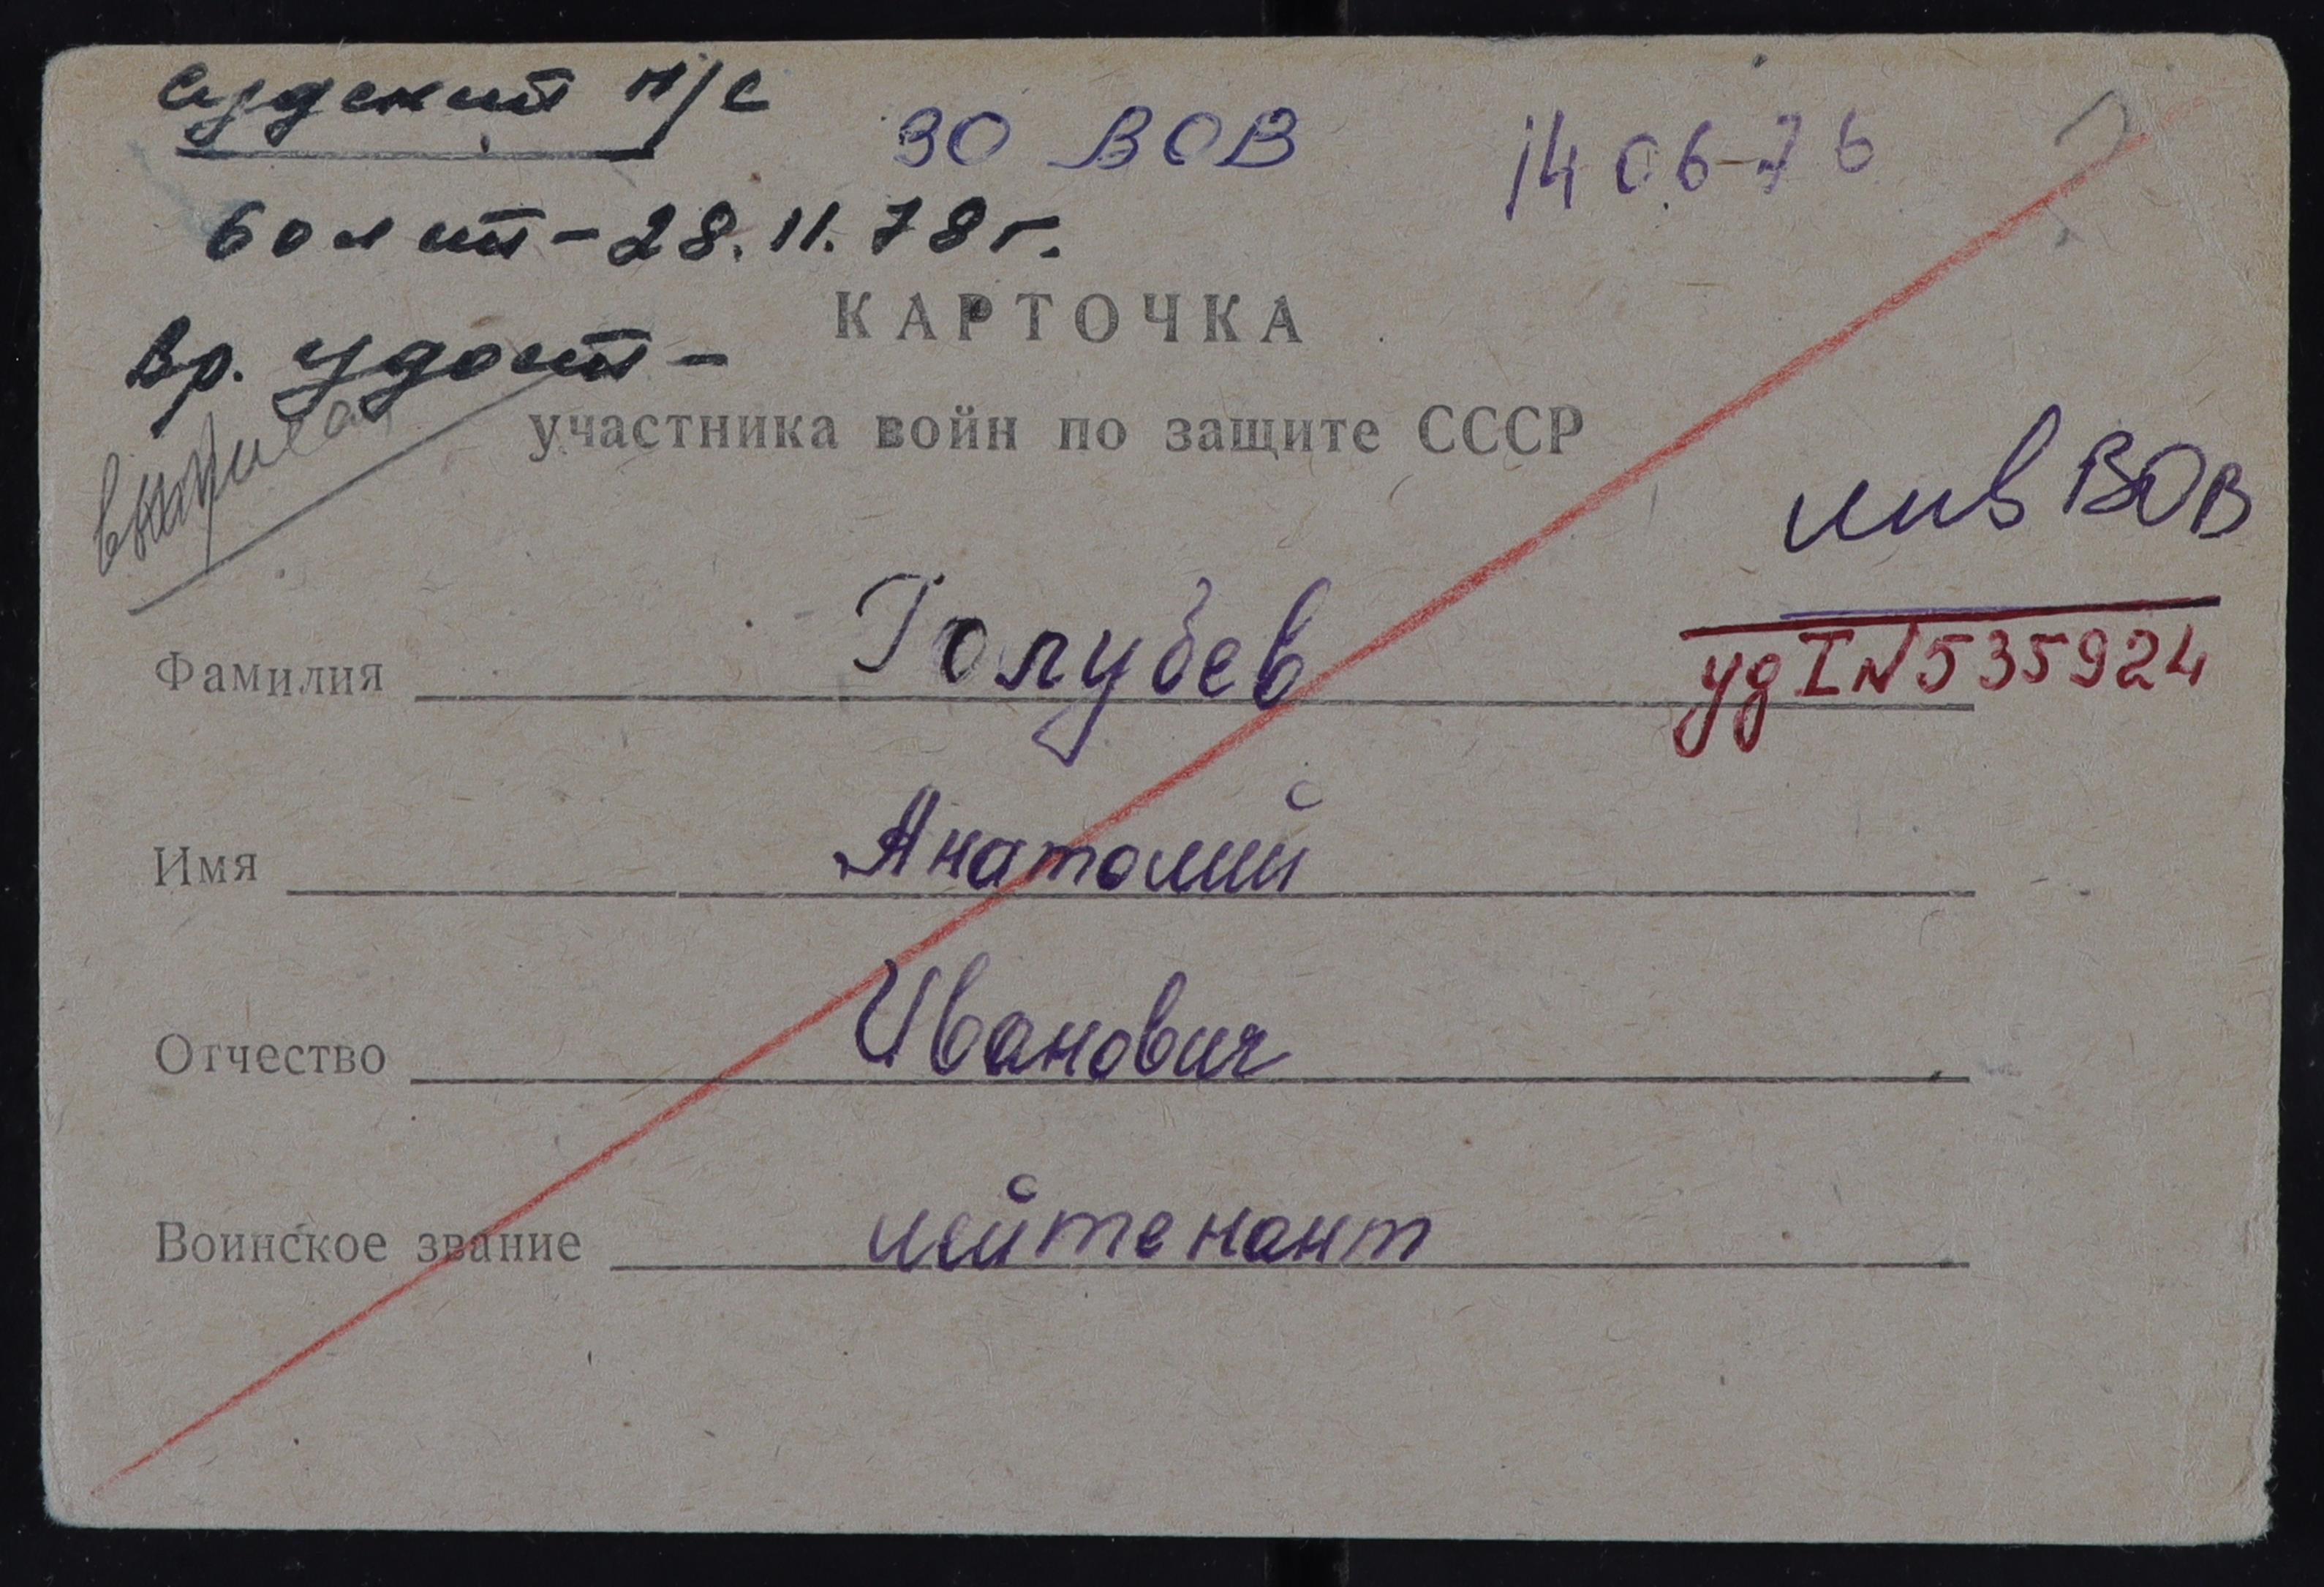 Судский н/с
ЗО ВОВ
14 06-76
60 лет - 28.11.78 г.
КАРТОЧКА
Вр. удост -
выписан
участника войн по защите СССР
инв ВОВ
Фамилия Голубев
уд I N 535924
Имя Анатолий
Отчество Иванович
Воинское звание лейтенант